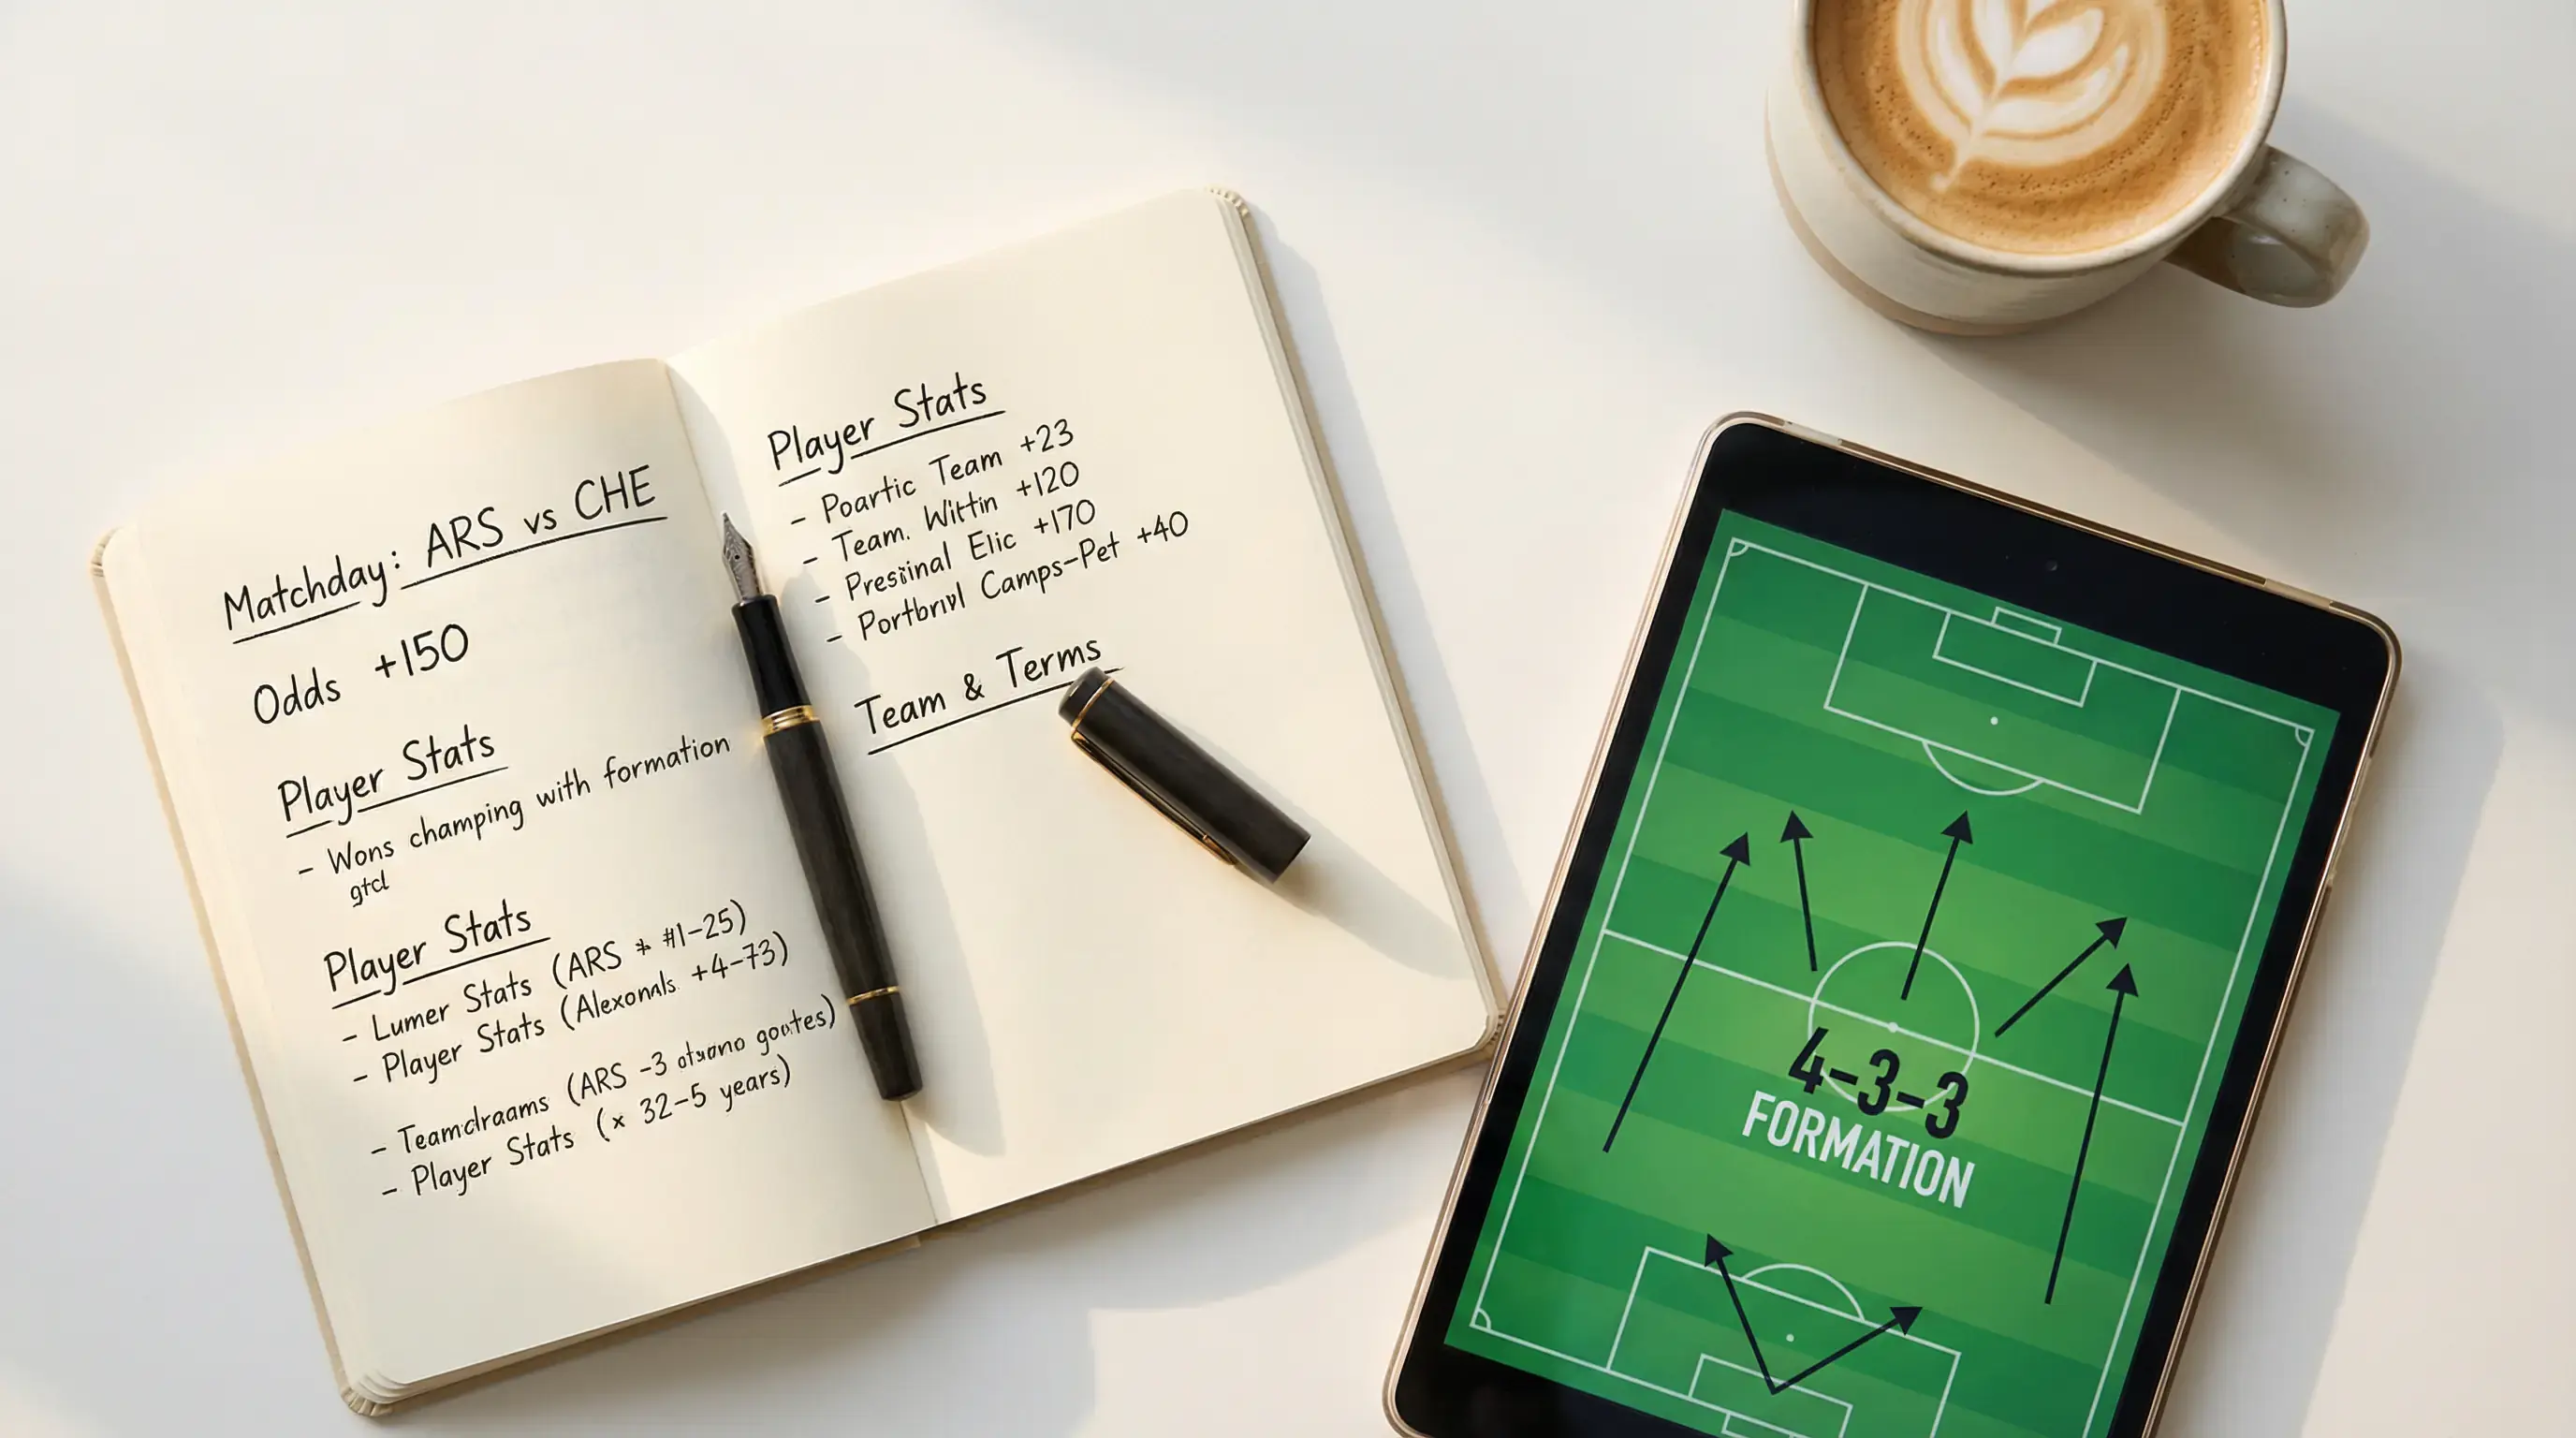 Matchday: ARS vs CHE
Odds +150
Player Stats
- Wons champing with formation
gtcl
Player Stats
- Lumer Stats (ARS * #1-25)
- Player Stats (Alexonals. +4-73)
- Teamdraams (ARS -3 goates)
- Player Stats (× 32-5 years)
Player Stats
- Poartic Team +23
- Team. Wittin +120
- Presiinal Elic +170
- Camps-Pet +40
Team & Terms
4-3-3
FORMATION